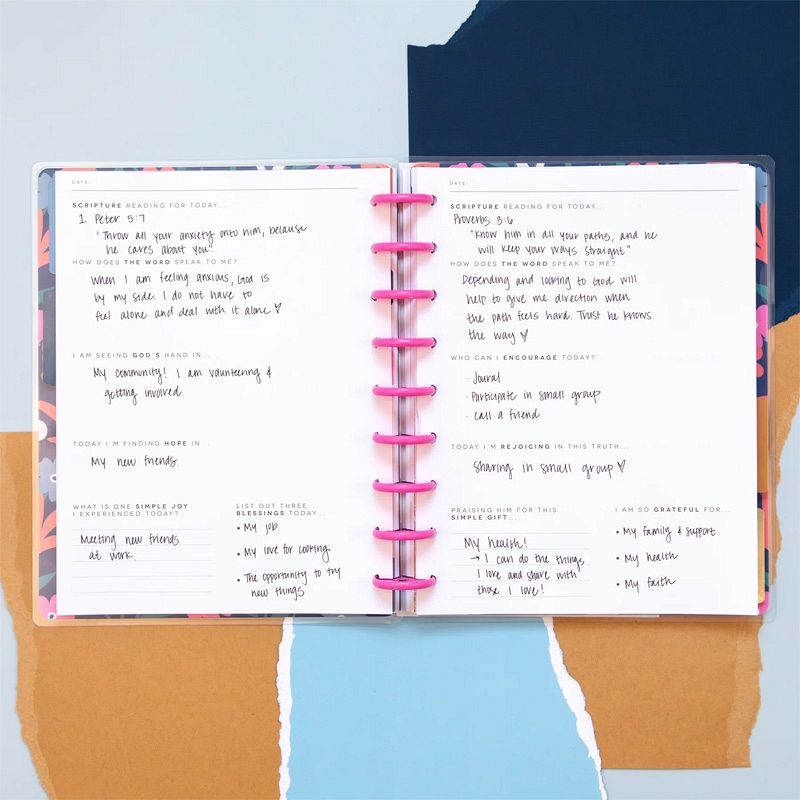 DATE:
SCRIPTURE READING FOR TODAY...
1 Peter 5:7
"Throw all your anxiety onto him, because
he cares about you"
HOW DOES THE WORD SPEAK TO ME?
When I am feeling anxious, God is
by my side. I do not have to
feel alone and deal with it alone ♡
I AM SEEING GOD'S HAND IN...
My community! I am volunteering &
getting involved.
TODAY I'M FINDING HOPE IN...
My new friends.
WHAT IS ONE SIMPLE JOY
I EXPERIENCED TODAY?
Meeting new friends
at work.
LIST OUT THREE
BLESSINGS TODAY...
• My job
• My love for cooking
• The opportunity to try
new things
DATE:
SCRIPTURE READING FOR TODAY...
Proverbs 3:6
"Know him in all your paths, and he
will keep your ways straight"
HOW DOES THE WORD SPEAK TO ME?
Depending and looking to God will
help to give me direction when
the path feels hard. Trust he knows
the way ♡
WHO CAN I ENCOURAGE TODAY?
· Joural
· Participate in small group
· call a friend
TODAY I'M REJOICING IN THIS TRUTH...
Sharing in small group ♡
PRAISING HIM FOR THIS
SIMPLE GIFT...
My health!
→ I can do the things
I love and share with
those I love!
I AM SO GRATEFUL FOR...
• My family & support
• My health
• My faith